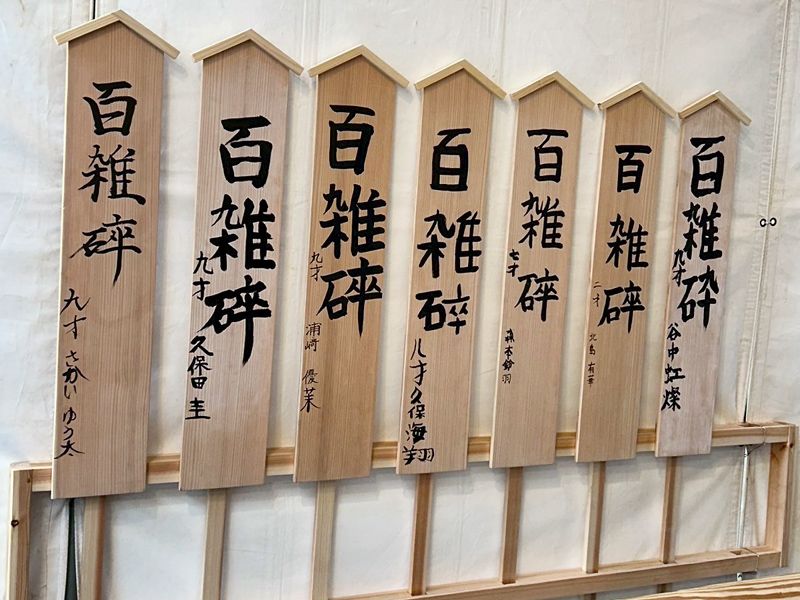 百雑碎
九才 さかい ゆう大
百雑碎
九才
久保田 圭
百雑碎
九才
浦崎 優茉
百雑碎
八才久保海翔
百雑碎
七才
森本鈴羽
百雑碎
二才
北島
百雑砕
九才
谷中虹燦